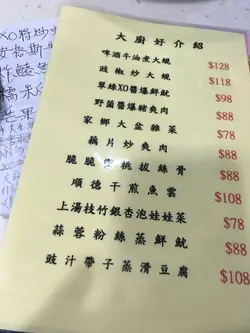 大廚好介紹
啤酒牛油煮大蜆 $128
豉椒炒大蜆 $118
翠綠XO醬爆鮮魷 $98
野菌醬爆豬爽肉 $88
家鄉大盆雜菜 $78
藕片炒爽肉 $88
脆脆蜜桃拔絲骨 $88
順德干煎魚雲 $108
上湯枝竹銀杏泡娃娃菜 $78
蒜蓉粉絲蒸鮮魷 $88
豉汁帶子蒸滑豆腐 $108